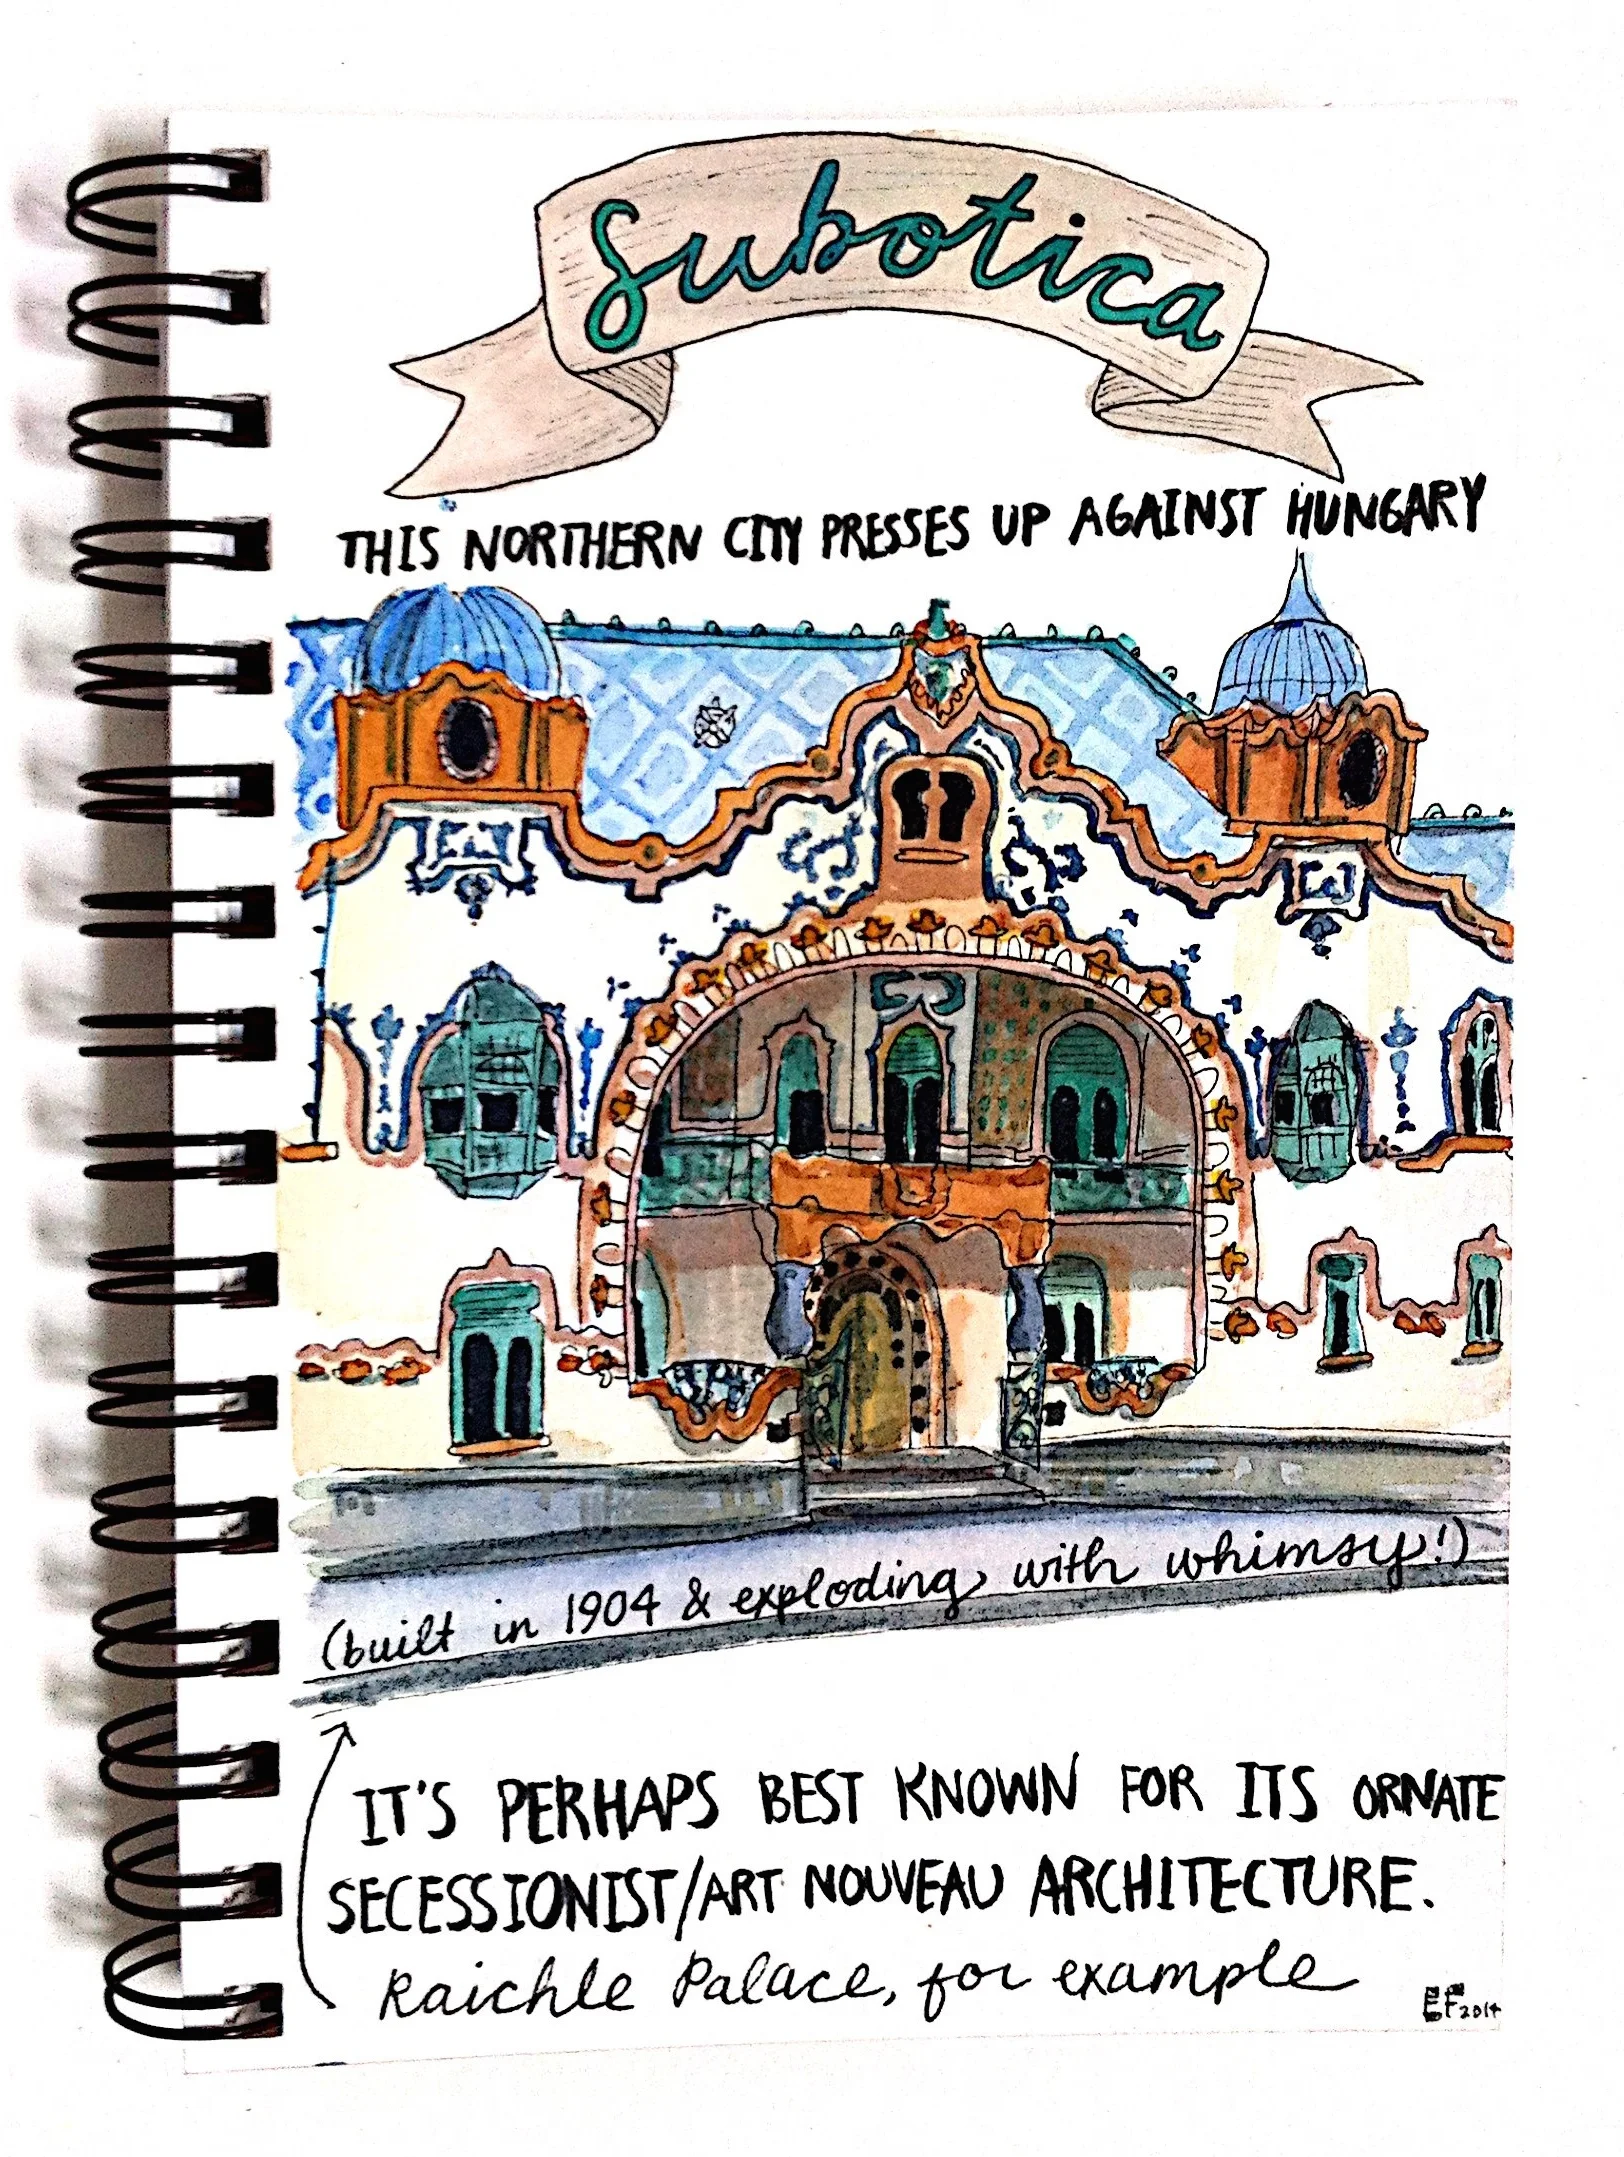 Subotica
THIS NORTHERN CITY PRESSES UP AGAINST HUNGARY
(built in 1904 & exploding with whimsy!)
IT'S PERHAPS BEST KNOWN FOR ITS ORNATE
SECESSIONIST/ART NOUVEAU ARCHITECTURE.
Raichle Palace, for example
EF 2014